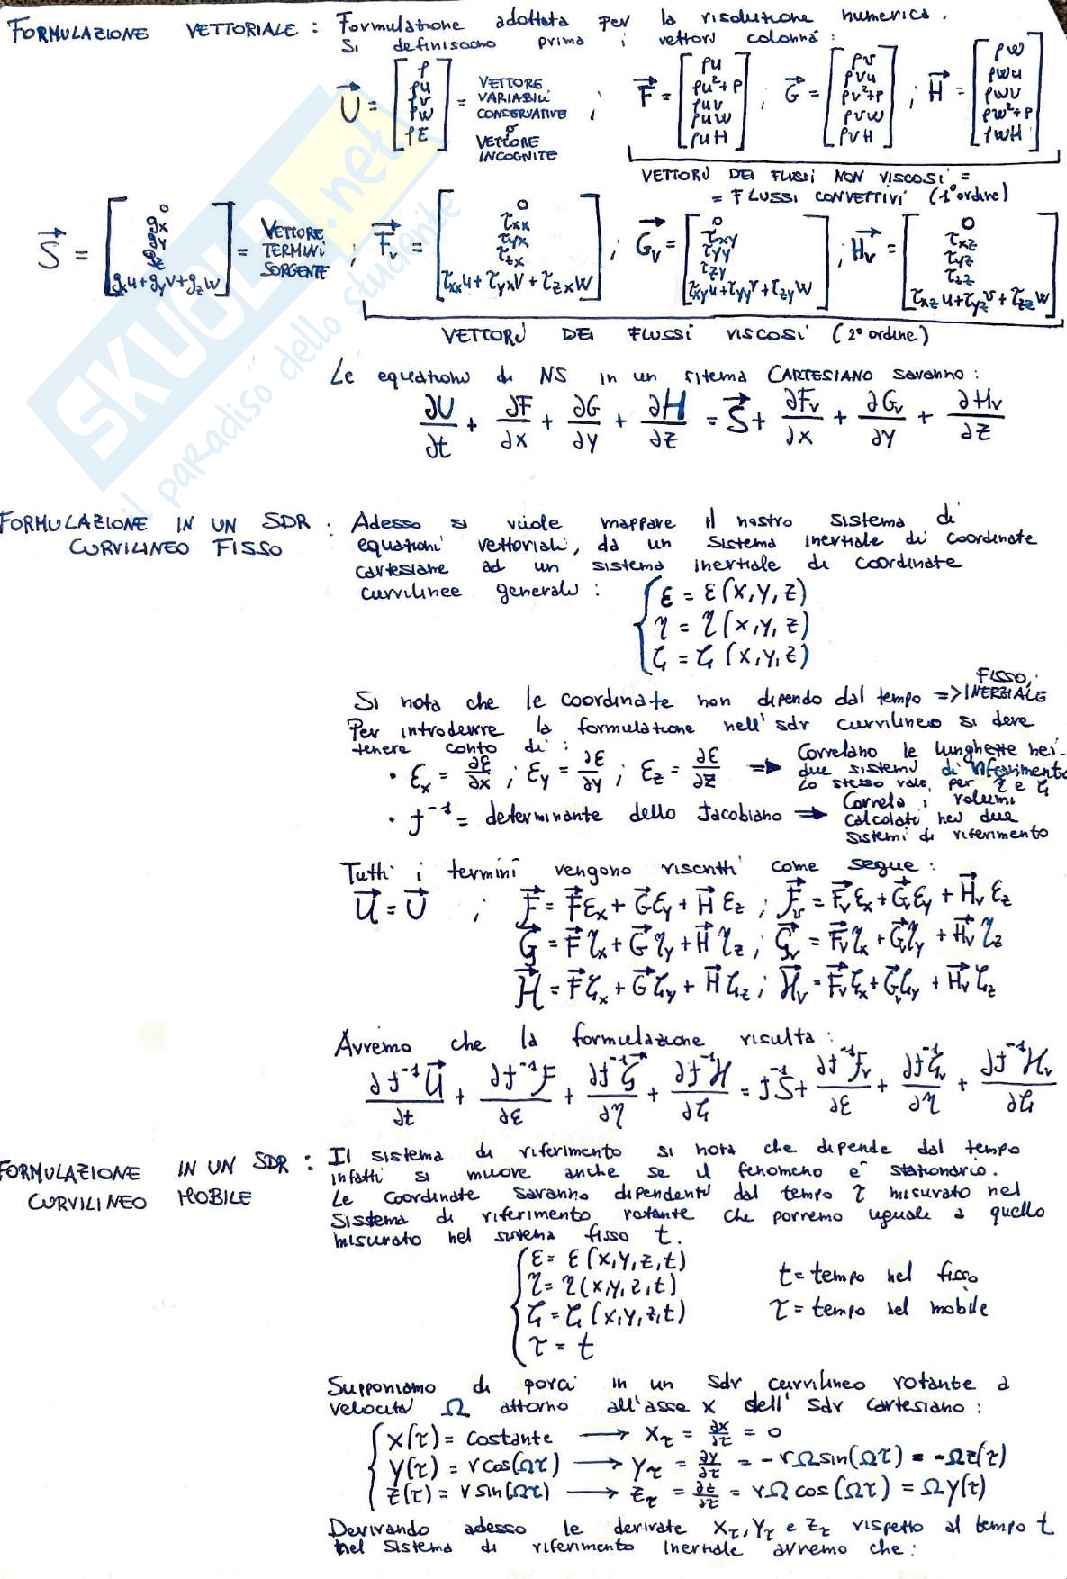 FORMULAZIONE VETTORIALE : Formulazione adottata per la risoluzione numerica.
Si definiscono prima i vettori colonna :
U = [ρ, ρu, ρv, ρw, ρE] = VETTORE VARIABILI CONSERVATIVE o VETTORE INCOGNITE ; F = [ρu, ρu²+P, ρuv, ρuw, ρuH] ; G = [ρv, ρvu, ρv²+P, ρvw, ρvH] ; H = [ρw, ρwu, ρwv, ρw²+P, ρwH]
VETTORI DEI FLUSSI NON VISCOSI =
= FLUSSI CONVETTIVI (1° ordine)
S = [0, gx, gy, gz, gxu+gyv+gzw] = VETTORE TERMINI SORGENTE ; Fv = [0, τxx, τyx, τzx, τxxu+τyxv+τzxw] ; Gv = [0, τxy, τyy, τzy, τxyu+τyyv+τzyw] ; Hv = [0, τxz, τyz, τzz, τxzu+τyzv+τzzw]
VETTORI DEI FLUSSI VISCOSI (2° ordine)
Le equazioni di NS in un sistema CARTESIANO saranno :
∂U/∂t + ∂F/∂x + ∂G/∂y + ∂H/∂z = S + ∂Fv/∂x + ∂Gv/∂y + ∂Hv/∂z
FORMULAZIONE IN UN SDR : Adesso si vuole mappare il nostro sistema di
CURVILINEO FISSO equazioni vettoriali, da un sistema inerziale di coordinate
cartesiane ad un sistema inerziale di coordinate
curvilinee generali :
ε = ε(x,y,z)
η = η(x,y,z)
ζ = ζ(x,y,z)
Si nota che le coordinate non dipendo dal tempo => FISSO, INERZIALE
Per introdurre la formulazione nell'sdr curvilineo si deve
tenere conto di :
• εx = ∂ε/∂x ; εy = ∂ε/∂y ; εz = ∂ε/∂z => Correlano le lunghezze nei
due sistemi di riferimento
Lo stesso vale per η e ζ
• J⁻¹ = determinante dello Jacobiano => Correla i volumi
calcolati nei due
sistemi di riferimento
Tutti i termini vengono riscritti come segue :
U = U ; F = Fεx + Gεy + Hεz ; Fv = Fvεx + Gvεy + Hvεz
G = Fηx + Gηy + Hηz ; Gv = Fvηx + Gvηy + Hvηz
H = Fζx + Gζy + Hζz ; Hv = Fvζx + Gvζy + Hvζz
Avremo che la formulazione risulta :
∂J⁻¹U/∂t + ∂J⁻¹F/∂ε + ∂J⁻¹G/∂η + ∂J⁻¹H/∂ζ = J⁻¹S + ∂J⁻¹Fv/∂ε + ∂J⁻¹Gv/∂η + ∂J⁻¹Hv/∂ζ
FORMULAZIONE IN UN SDR : Il sistema di riferimento si nota che dipende dal tempo
CURVILINEO MOBILE infatti si muove anche se il fenomeno è stazionario.
Le coordinate saranno dipendenti dal tempo τ misurato nel
sistema di riferimento rotante che porremo uguale a quello
misurato nel sistema fisso t.
ε = ε(x,y,z,t)
η = η(x,y,z,t) t = tempo nel fisso
ζ = ζ(x,y,z,t) τ = tempo nel mobile
τ = t
Supponiamo di porci in un sdr curvilineo rotante a
velocità Ω attorno all'asse x dell'sdr cartesiano :
x(τ) = costante → xτ = ∂x/∂τ = 0
y(τ) = r cos(Ωτ) → yτ = ∂y/∂τ = -rΩ sin(Ωτ) = -Ωz(τ)
z(τ) = r sin(Ωτ) → zτ = ∂z/∂τ = rΩ cos(Ωτ) = Ωy(τ)
Derivando adesso le derivate xτ, yτ e zτ rispetto al tempo t
nel sistema di riferimento inerziale avremo che :
SKUOLA.net
il paradiso dello studente